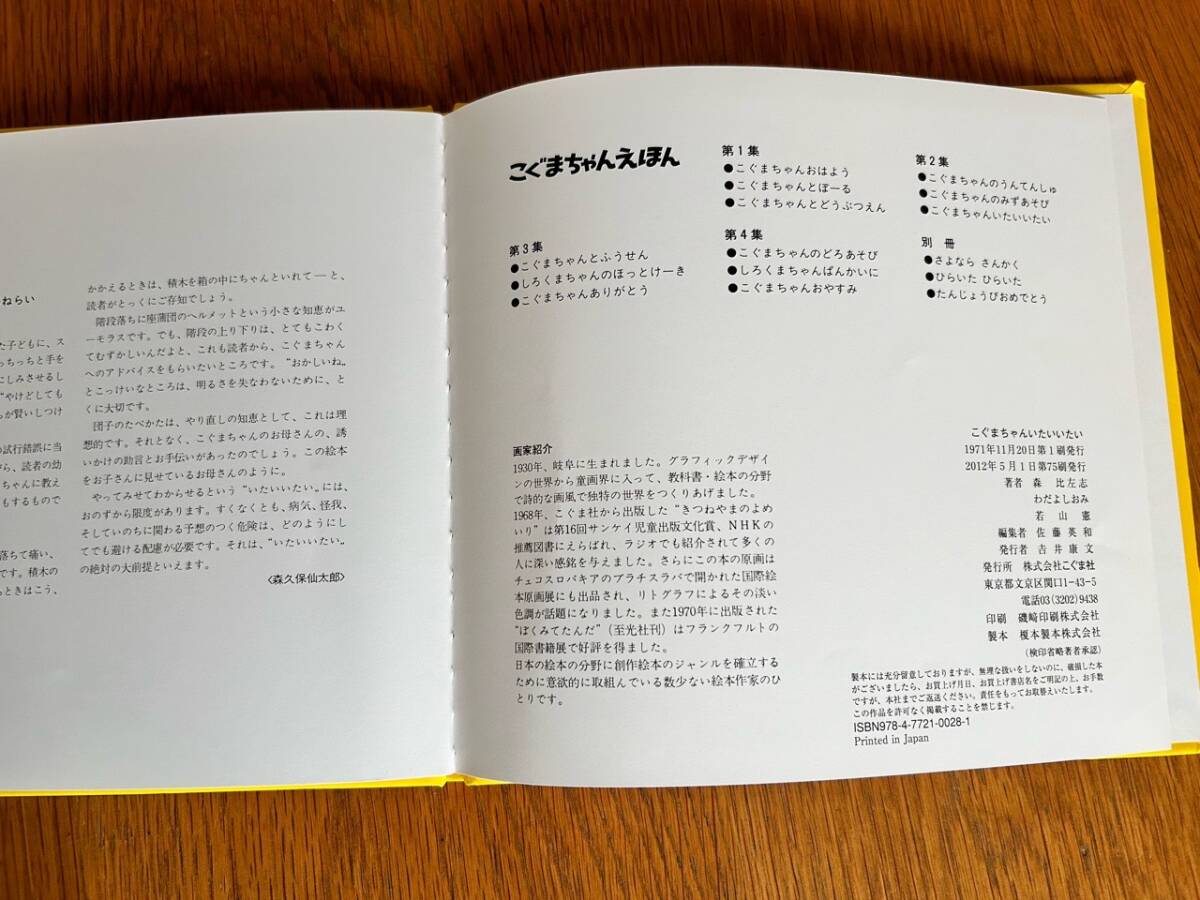 ねらい
た子どもに、ス
っちっちと手を
にしみさせるし
“やけどしても
が賢いしつけ
試行錯誤に当
がら、読者の幼
ちゃんに教え
もするもので
落ちて痛い、
です。積木の
ときはこう、
かかえるときは、積木を箱の中にちゃんといれて―と、
読者がとっくにご存知でしょう。
階段落ちに座蒲団のヘルメットという小さな知恵がユ
ーモラスです。でも、階段の上り下りは、とてもこわく
てむずかしいんだよと、これも読者から、こぐまちゃん
へのアドバイスをもらいたいところです。“おかしいね„
とこっけいなところは、明るさを失なわないために、と
くに大切です。
団子のたべかたは、やり直しの知恵として、これは理
想的です。それとなく、こぐまちゃんのお母さんの、誘
いかけの助言とお手伝いがあったのでしょう。この絵本
をお子さんに見せているお母さんのように。
やってみせてわからせるという“いたいいたい„には、
おのずから限度があります。すくなくとも、病気、怪我、
そしていのちに関わる予想のつく危険は、どのようにし
てでも避ける配慮が必要です。それは、“いたいいたい„
の絶対の大前提といえます。
〈森久保仙太郎〉
こぐまちゃんえほん
第1集
●こぐまちゃんおはよう
●こぐまちゃんとぼーる
●こぐまちゃんとどうぶつえん
第2集
●こぐまちゃんのうんてんしゅ
●こぐまちゃんのみずあそび
●こぐまちゃんいたいいたい
第3集
●こぐまちゃんとふうせん
●しろくまちゃんのほっとけーき
●こぐまちゃんありがとう
第4集
●こぐまちゃんのどろあそび
●しろくまちゃんぱんかいに
●こぐまちゃんおやすみ
別 冊
●さよなら さんかく
●ひらいた ひらいた
●たんじょうびおめでとう
画家紹介
1930年、岐阜に生まれました。グラフィックデザイ
ンの世界から童画界に入って、教科書・絵本の分野
で詩的な画風で独特の世界をつくりあげました。
1968年、こぐま社から出版した“きつねやまのよめ
いり”は第16回サンケイ児童出版文化賞、NHKの
推薦図書にえらばれ、ラジオでも紹介されて多くの
人に深い感銘を与えました。さらにこの本の原画は
チェコスロバキアのブラチスラバで開かれた国際絵
本原画展にも出品され、リトグラフによるその淡い
色調が話題になりました。また1970年に出版された
“ぼくみてたんだ”（至光社刊）はフランクフルトの
国際書籍展で好評を得ました。
日本の絵本の分野に創作絵本のジャンルを確立する
ために意欲的に取組んでいる数少ない絵本作家のひ
とりです。
こぐまちゃんいたいいたい
1971年11月20日第1刷発行
2012年5月1日第75刷発行
著者 森 比左志
わだよしおみ
若 山 憲
編集者 佐藤英和
発行者 吉井康文
発行所 株式会社こぐま社
東京都文京区関口1-43-5
電話03(3202)9438
印刷 磯崎印刷株式会社
製本 榎本製本株式会社
（検印省略著者承認）
製本には充分留意しておりますが、無理な扱いをしないのに、破損した本
がございましたら、お買上げ月日、お買上げ書店名をご明記の上、お手数
ですが、本社までご返送ください。責任をもってお取替えいたします。
この作品を許可なく掲載することを禁じます。
ISBN978-4-7721-0028-1
Printed in Japan